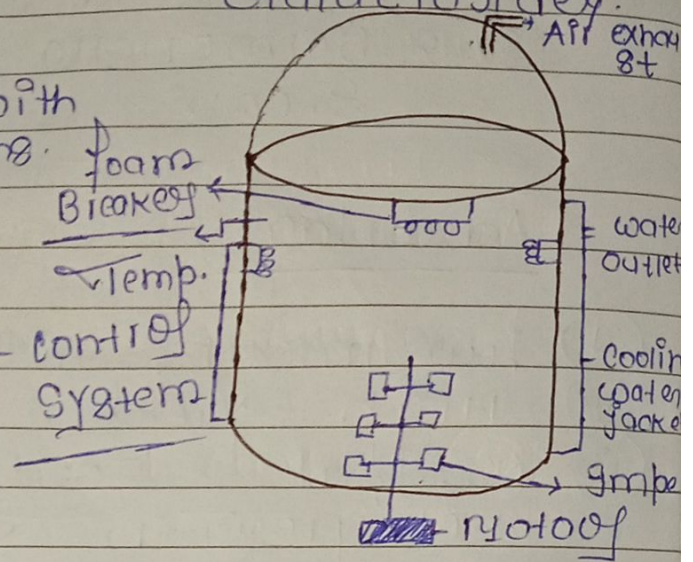 Air exhau
st
with
Foam
Breaker
Temp.
control
system
water
outlet
coolin
water
jacke
impe
Motor